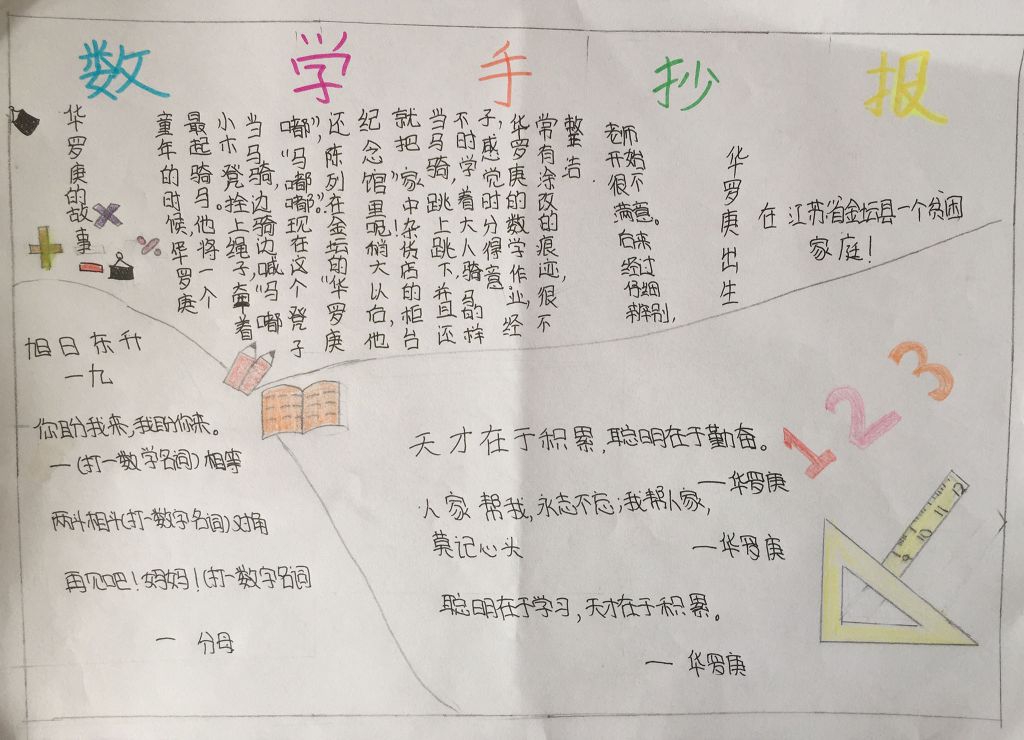 数学手抄报
华罗庚的故事
童年的时候,华罗庚
最起骑马。他将一个
小木凳拴上绳子,牵着
当马骑,边骑边喊“马嘟
嘟”,“马嘟嘟”。现在这个凳子
还陈列在金坛的“华罗庚
纪念馆里呢!稍大以后,他
就把家中杂货店的柜台
当马骑,跳上跳下,并且还
不时学着大人骑马的样
子,感觉时分得意
华罗庚的数学作业,经
常有涂改的痕迹,很不
整洁
老师
开始
很不
满意。
后来
经过
仔细
辨别,
华罗庚出生
在江苏省金坛县一个贫困
家庭!
旭日东升
一九
你盼我来,我盼你来。
一(打一数学名词)相等
两斗相斗(打一数字名词)对角
再见吧!妈妈!(打一数字名词
一 分母
天才在于积累,聪明在于勤奋。
一华罗庚
人家帮我,永志不忘;我帮人家,
莫记心头
一华罗庚
聪明在于学习,天才在于积累。
一 华罗庚
1 2 3
1
9 10 11 12